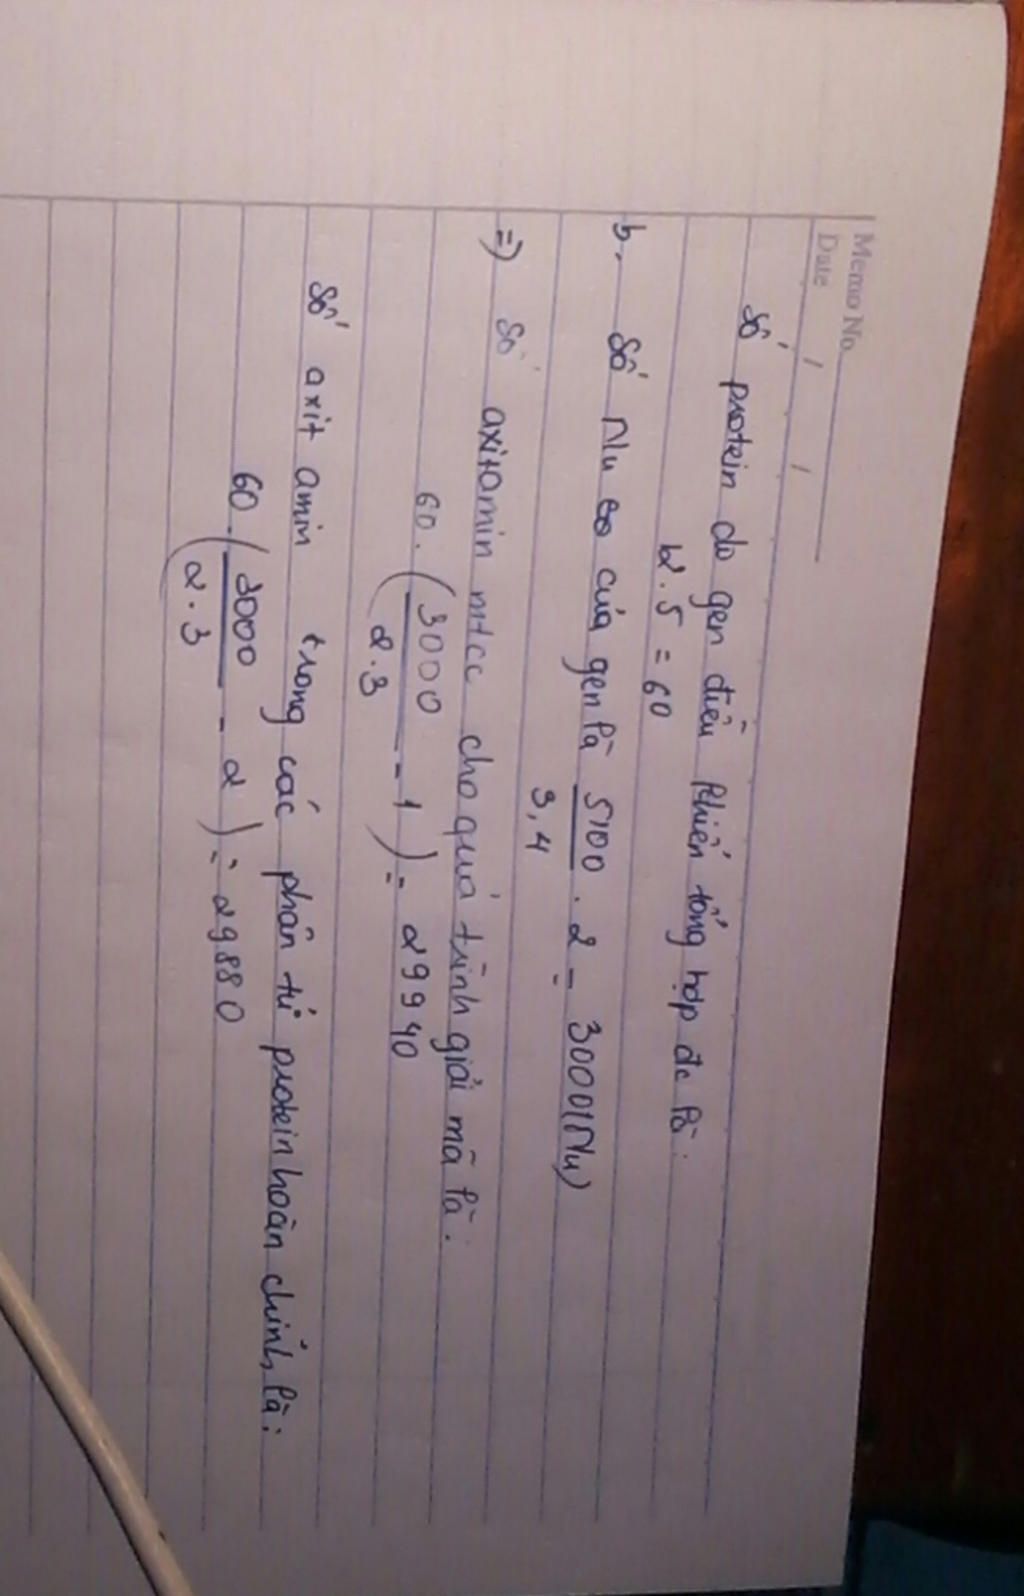 Memo No.
Date / /
Số protein do gen điều khiển tổng hợp đc là:
12.5 = 60
b, Số Nu của gen là 5100/3,4 . 2 = 3000(Nu)
=) Số axitamin mtcc cho quá trình giải mã là:
60. (3000/2.3 - 1) = 29940
Số axit amin trong các phân tử protein hoàn chỉnh là:
60. (3000/2.3 - 2) = 29880